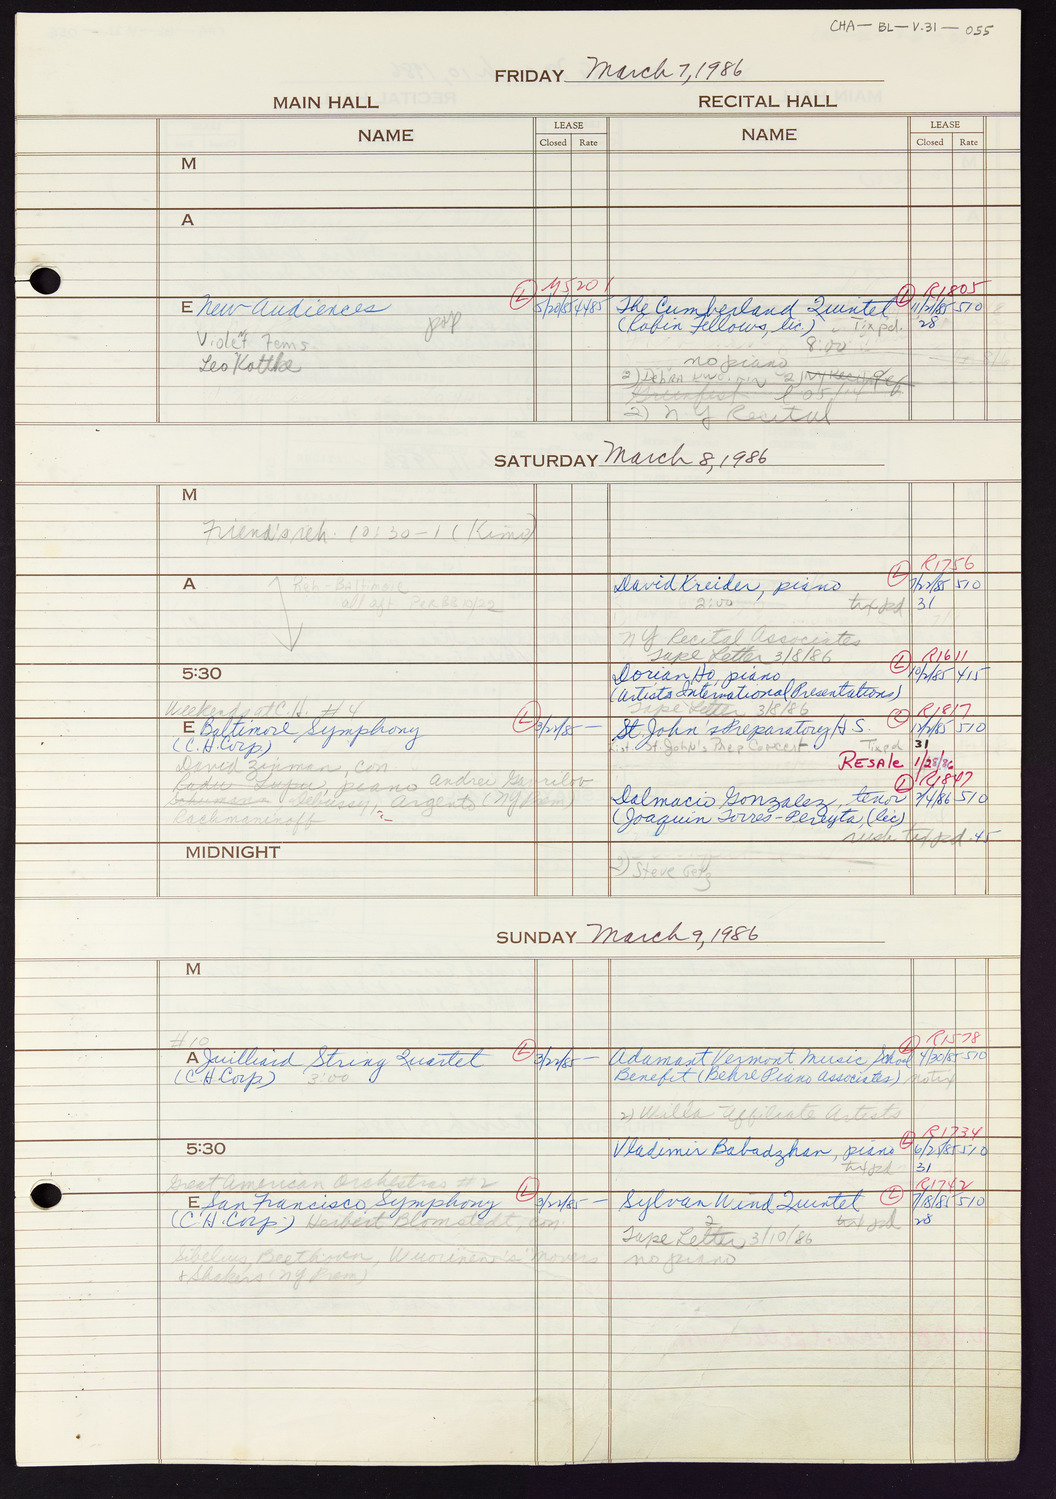 CHA-BL-V.31-055
FRIDAY March 7, 1986
MAIN HALL
RECITAL HALL
NAME
LEASE
Closed Rate
NAME
LEASE
Closed Rate
M
A
M5201
E New Audiences
L 5/20/85 4485
pop
Violet Fems
Leo Kottke
R1805
The Cumberland Quintet L 11/21/85 510
(Robin Fellows, lic) Tix pd. 28
8:00
no piano
2) N Y Recital
SATURDAY March 8, 1986
M
Friend's reh. 10:30-1 (Kimo)
A
Reh-Baltimore
all aft per BB 10/22
R1756
David Kreider, piano L 7/22/85 510
2:00 tix pd 31
NY Recital Associates
Tape Letter 3/8/86
5:30
R1611
Dorian Ho, piano L 10/2/85 415
(Artists International Presentations)
Tape Letter 3/8/86
Weekends at C.H. #4
E Baltimore Symphony L 3/22/85 —
(C.H. Corp)
David Zinman, con
Radu Lupu, piano Andrei Gavrilov
Schumann Debussy, Argento (NY Prem)
Rachmaninoff
R1817
St. John's Preparatory H.S.
St. John's Prep Concert Tix pd 31
RESALE 1/28/86
R1847
Dalmacio Gonzalez, tenor L 2/4/86 510
(Joaquin Torres-Pereyta, lic)
rush tix pd. 45
MIDNIGHT
2) Steve Getz
SUNDAY March 9, 1986
M
#10
A Juilliard String Quartet L 3/22/85 —
(C.H Corp) 3:00
R1578
Adamant Vermont Music School L 4/30/85 510
Benefit (Behre Piano Associates) no tix
2) Willa Affiliate Artists
5:30
R1734
Vladimir Babadzhan, piano L 6/25/85 510
tix pd 31
Great American Orchestras #2
E San Francisco Symphony L 3/22/85 —
(C.H. Corp.) Herbert Blomstedt, con
Sibelius, Beethoven, Wuorinen's "Movers
& Shakers (NY Prem)
R1742
Sylvan Wind Quintet L 7/18/85 510
2 tix pd 28
Tape Letter, 3/10/86
no piano